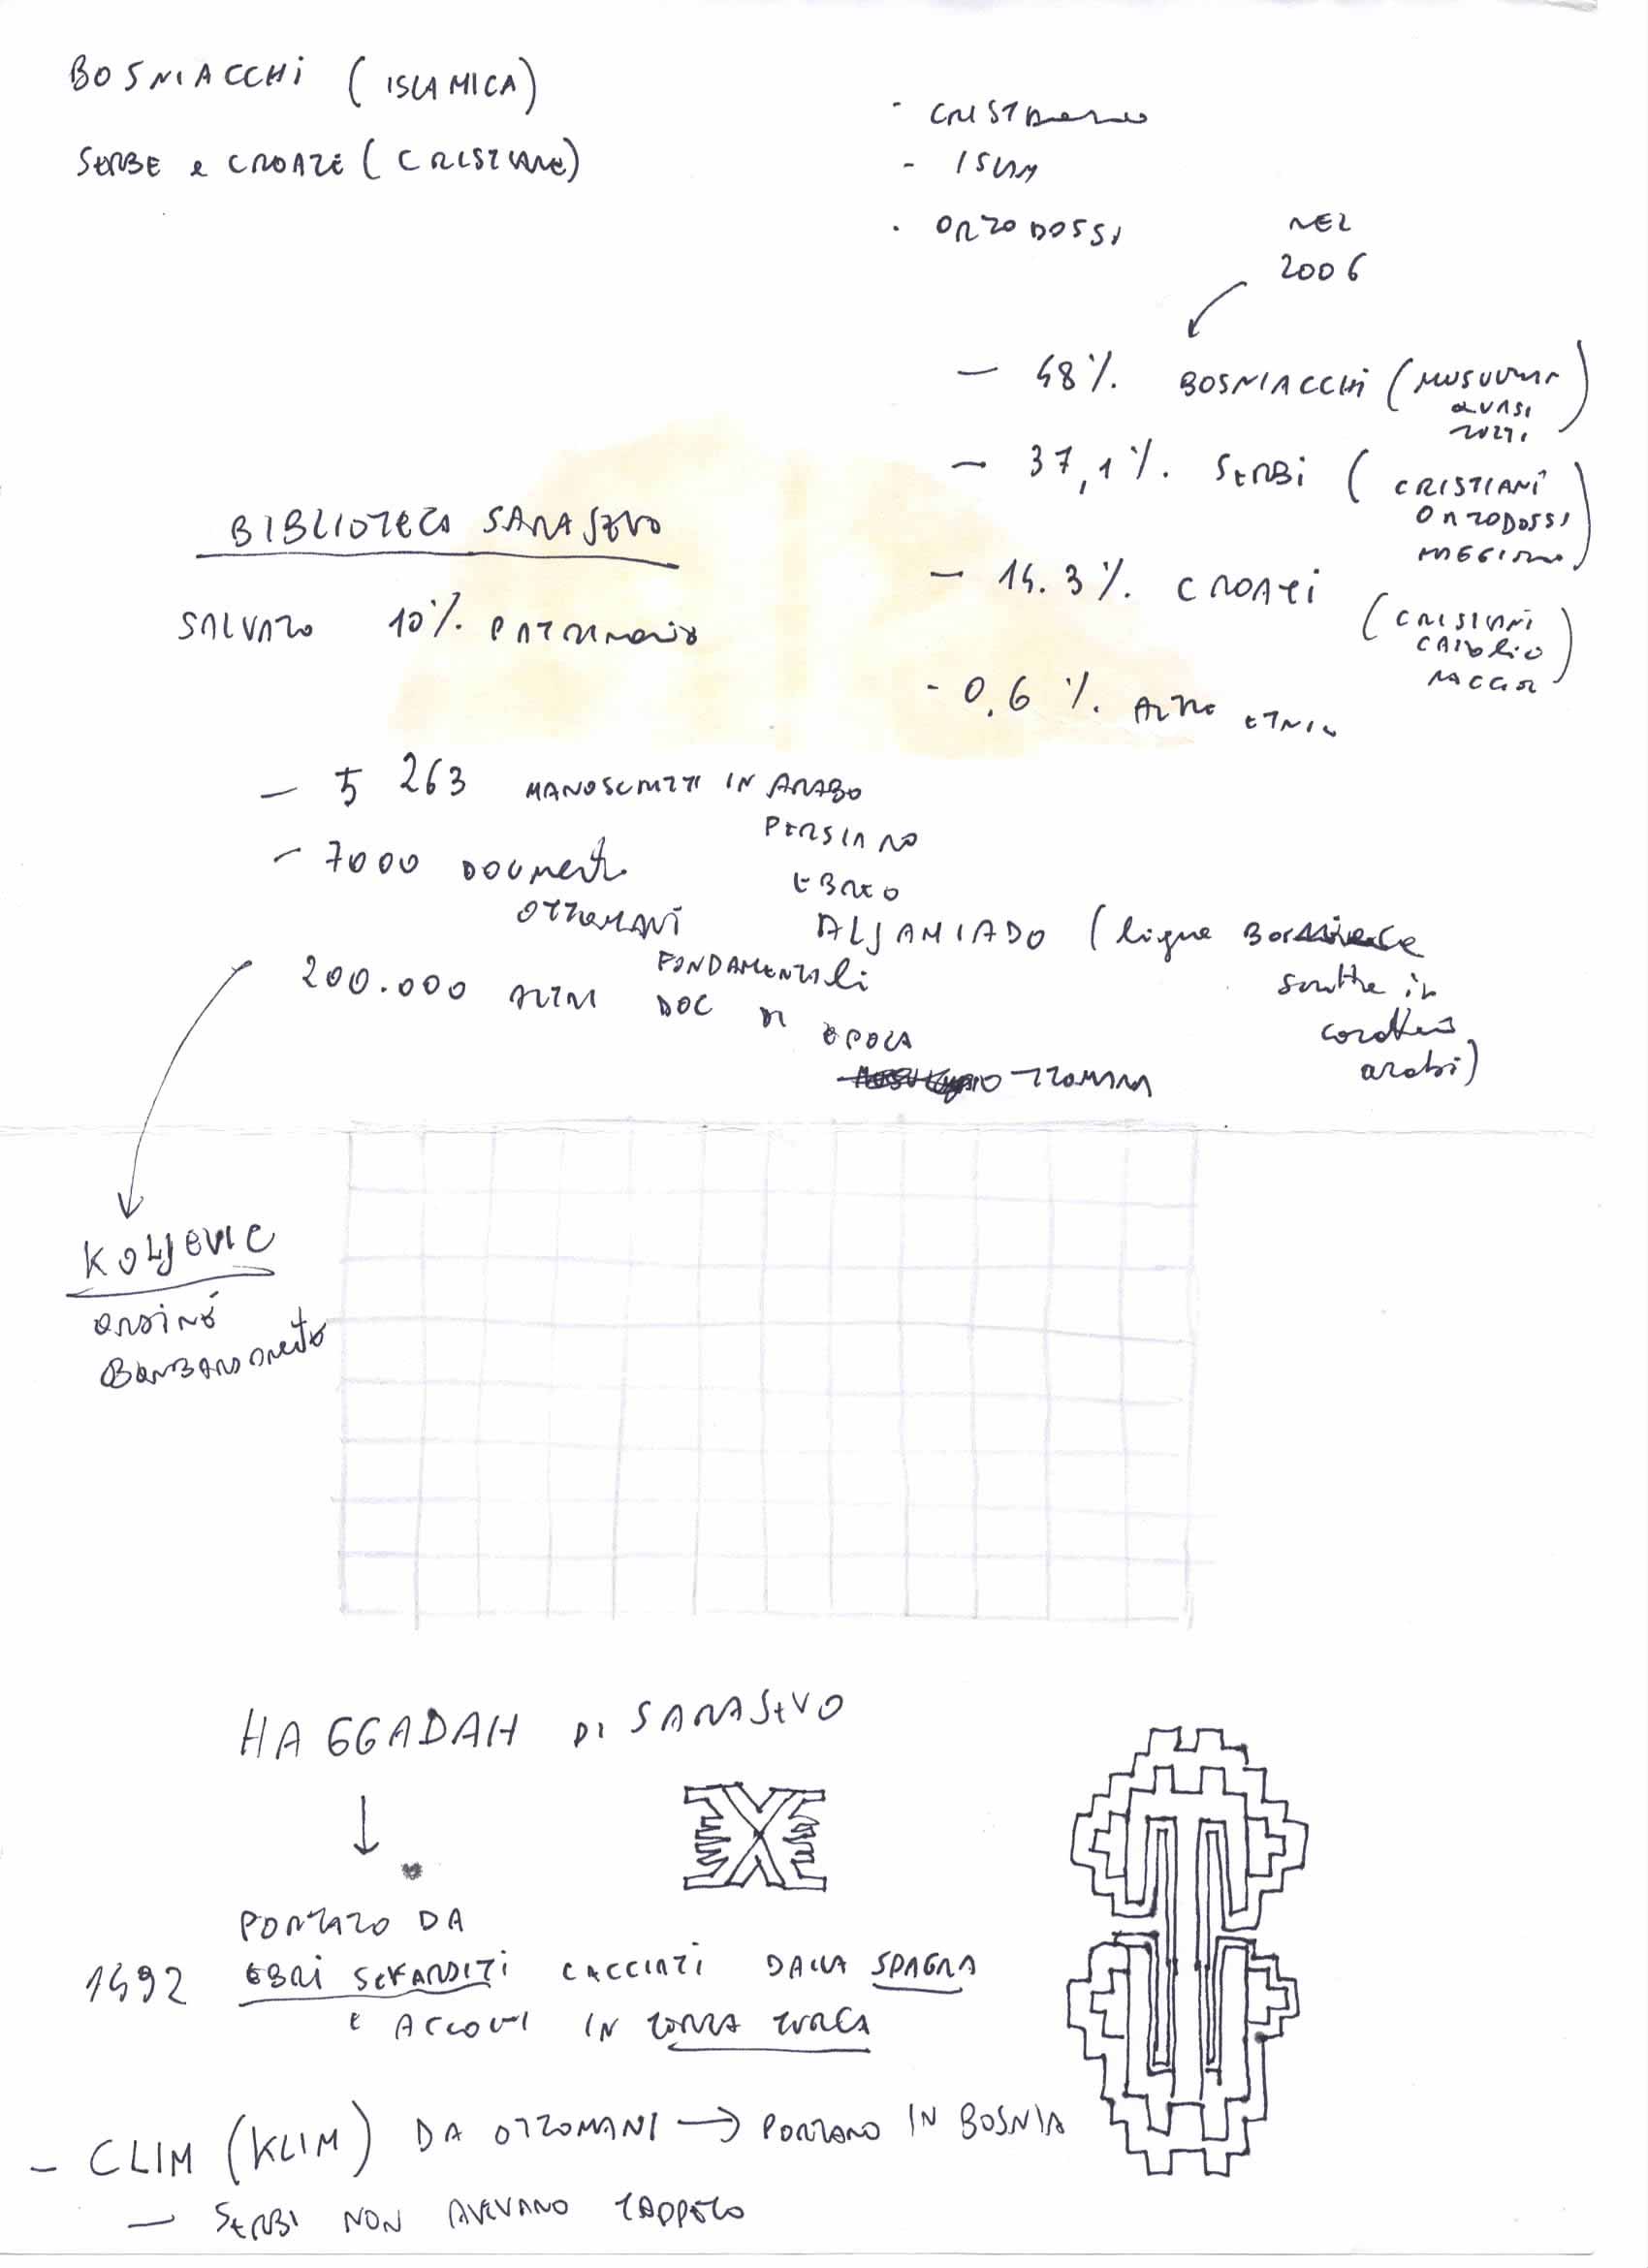 BOSNIACCHI (ISLAMICA)
SERBE e CROATE (CRISTIANE)
- CRISTIANESIMO
- ISLAM
- ORTODOSSI
NEL
2006
- 48% BOSNIACCHI (MUSULMANI
QUASI
TUTTI)
- 37,1% SERBI (CRISTIANI
ORTODOSSI
MAGGIOR)
- 14.3% CROATI (CRISTIANI
CATTOLICI
MAGGIOR)
- 0.6% ALTRE ETNIE
BIBLIOTECA SARAJEVO
SALVATO 10% PATRIMONIO
- 5 263 MANOSCRITTI IN ARABO
PERSIANO
EBREO
ALJAMIADO (lingue BOSNIACCHE
scritte in
caratteri
arabi)
- 7000 DOCUMENTI
OTTOMANI
200.000 ALTRI FONDAMENTALI
DOC DI
EPOCA
OTTOMANA
KOLJEVIC
ORDINÒ
BOMBARDAMENTO
HAGGADAH DI SARAJEVO
PORTATO DA
1492 EBREI SEFARDITI CACCIATI DALLA SPAGNA
E ACCOLTI IN TERRA TURCA
- CLIM (KLIM) DA OTTOMANI → PORTANO IN BOSNIA
- SERBI NON AVEVANO TAPPETO